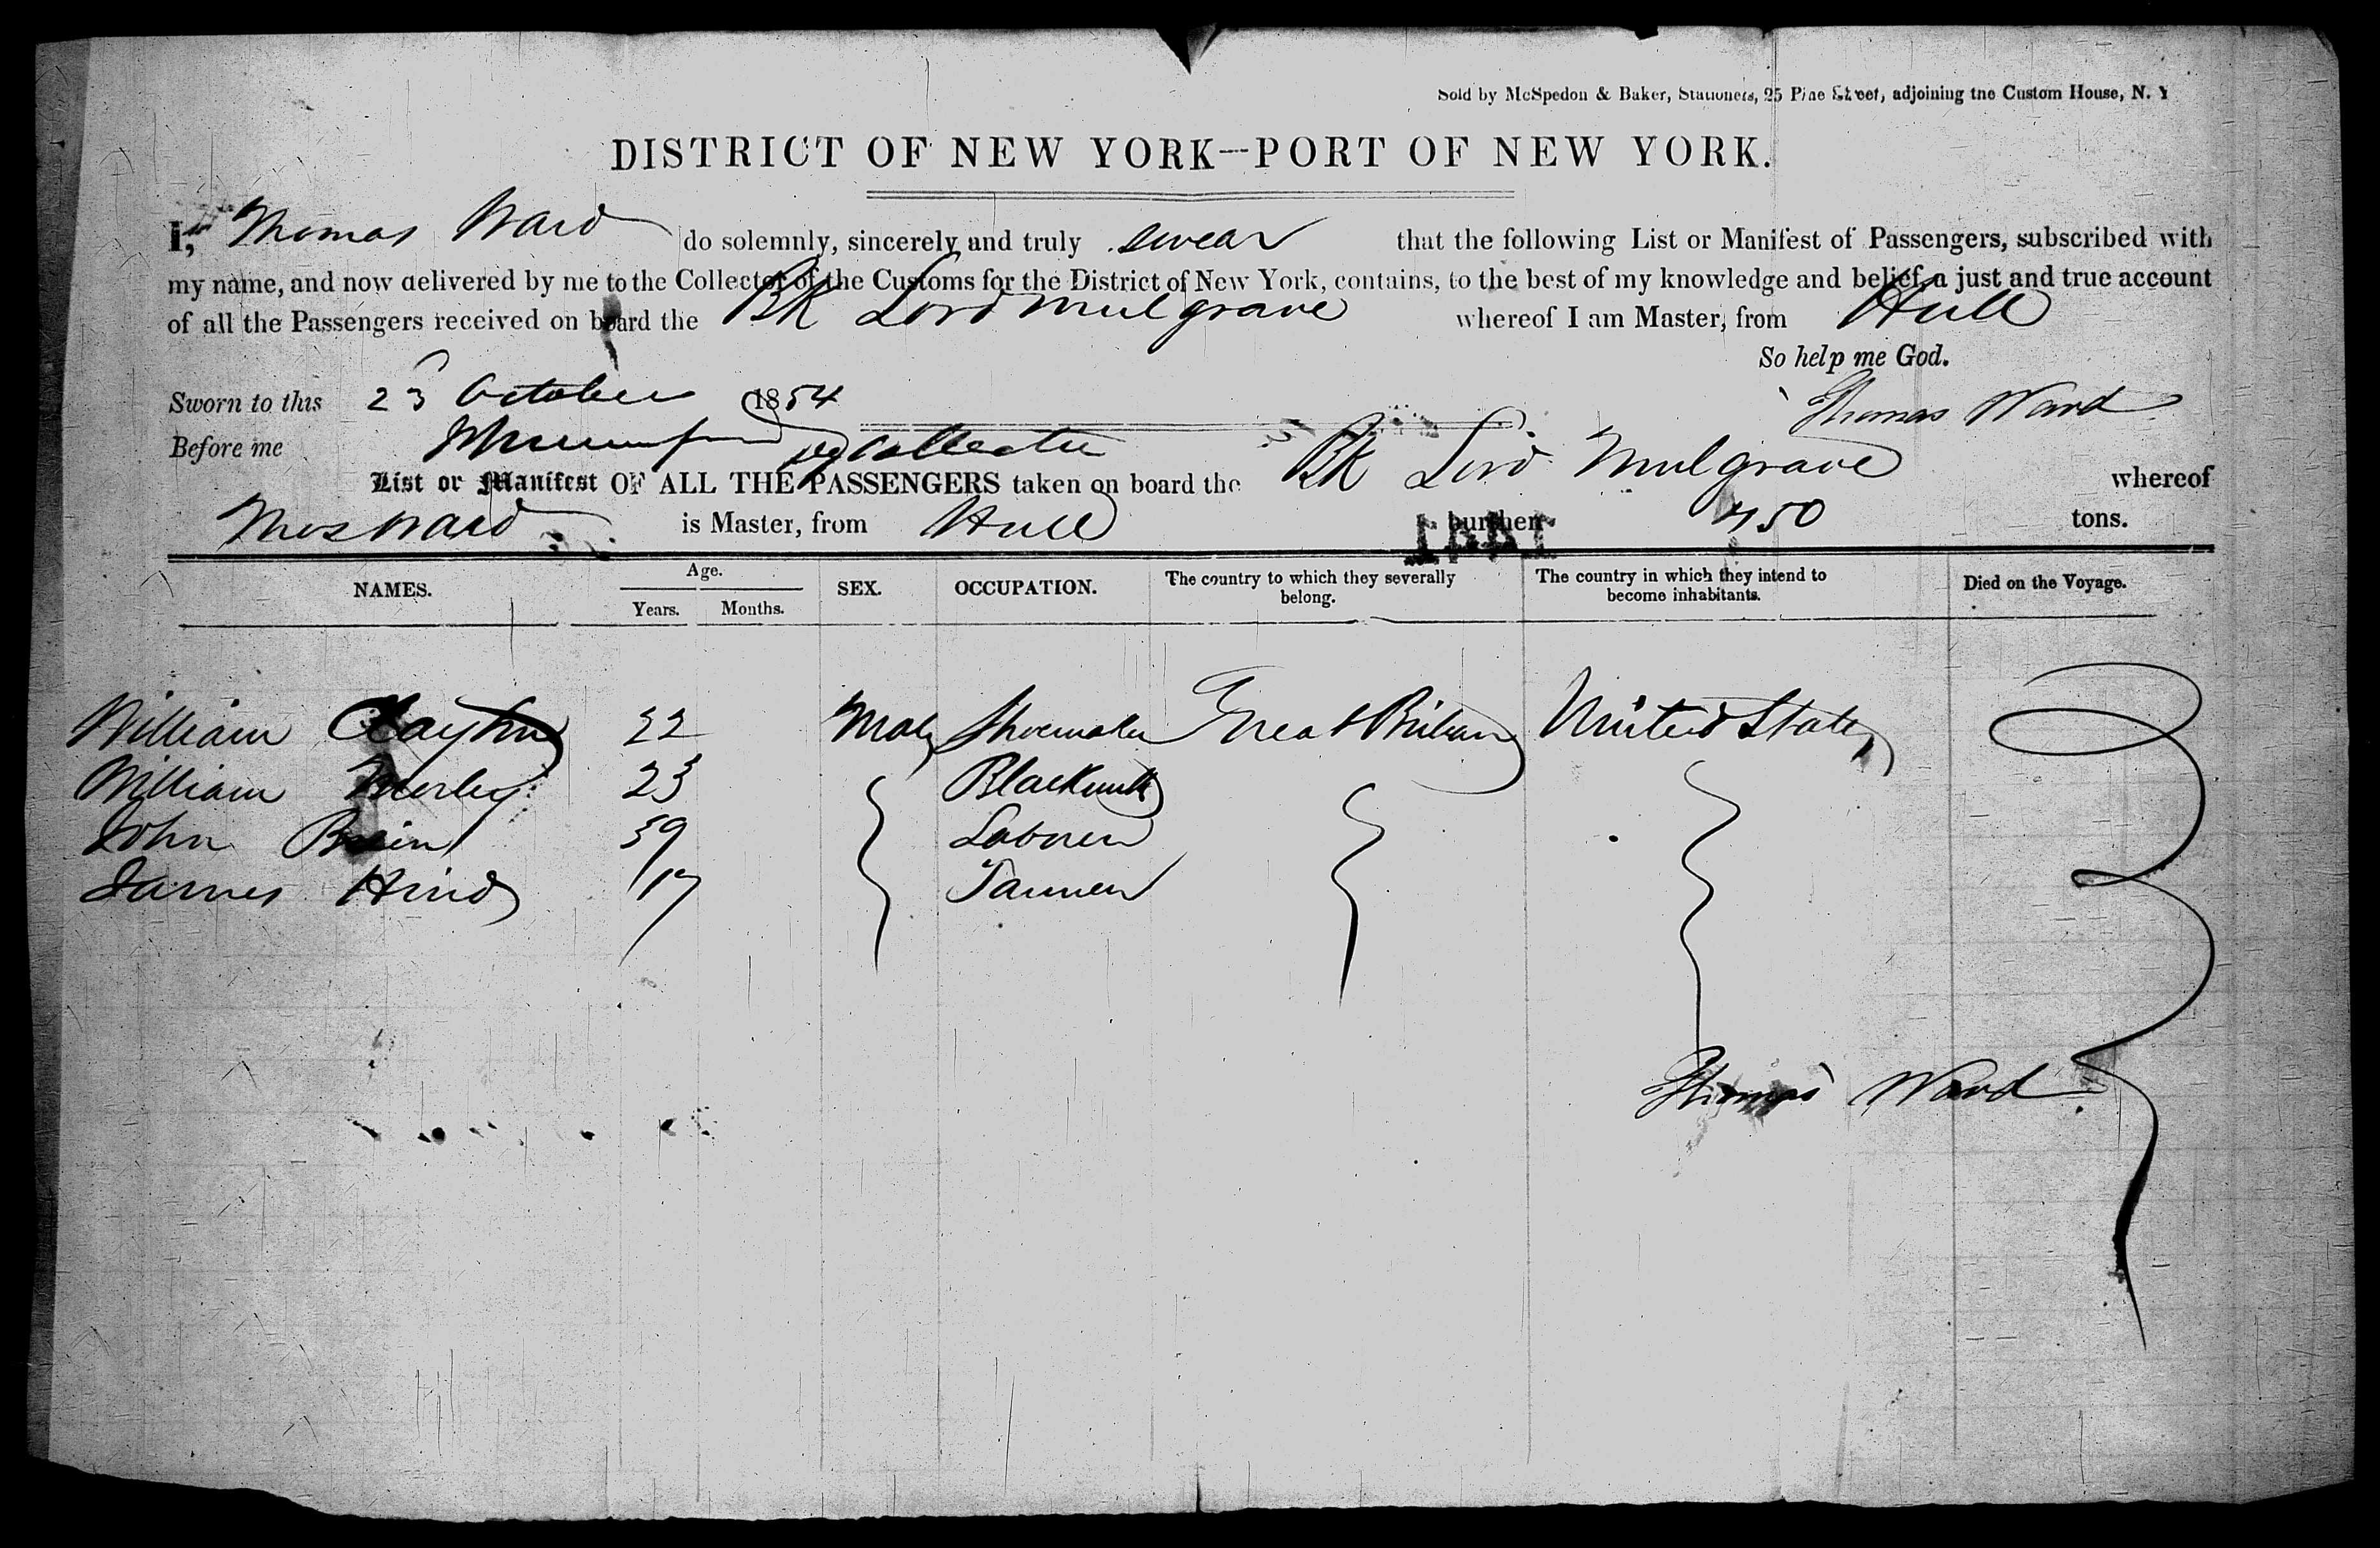 Sold by McSpedon & Baker, Stationers, 25 Pine Street, adjoining the Custom House, N. Y
DISTRICT OF NEW YORK—PORT OF NEW YORK.
I, Thomas Ward do solemnly, sincerely and truly swear that the following List or Manifest of Passengers, subscribed with
my name, and now delivered by me to the Collector of the Customs for the District of New York, contains, to the best of my knowledge and belief, a just and true account
of all the Passengers received on board the Bk Lord Mulgrave whereof I am Master, from Hull
So help me God.
Sworn to this 23 October 1854 Thomas Ward
Before me Collector
List or Manifest OF ALL THE PASSENGERS taken on board the Bk Lord Mulgrave whereof
Thos Ward is Master, from Hull burthen 450 tons.
NAMES. Age. Years. Months. SEX. OCCUPATION. The country to which they severally belong. The country in which they intend to become inhabitants. Died on the Voyage.
William Clayton 22 Male Shoemaker Great Britain United States
William Morley 23 Blacksmith
John 39 Laborer
James Hind 17 Tanner
Thomas Ward